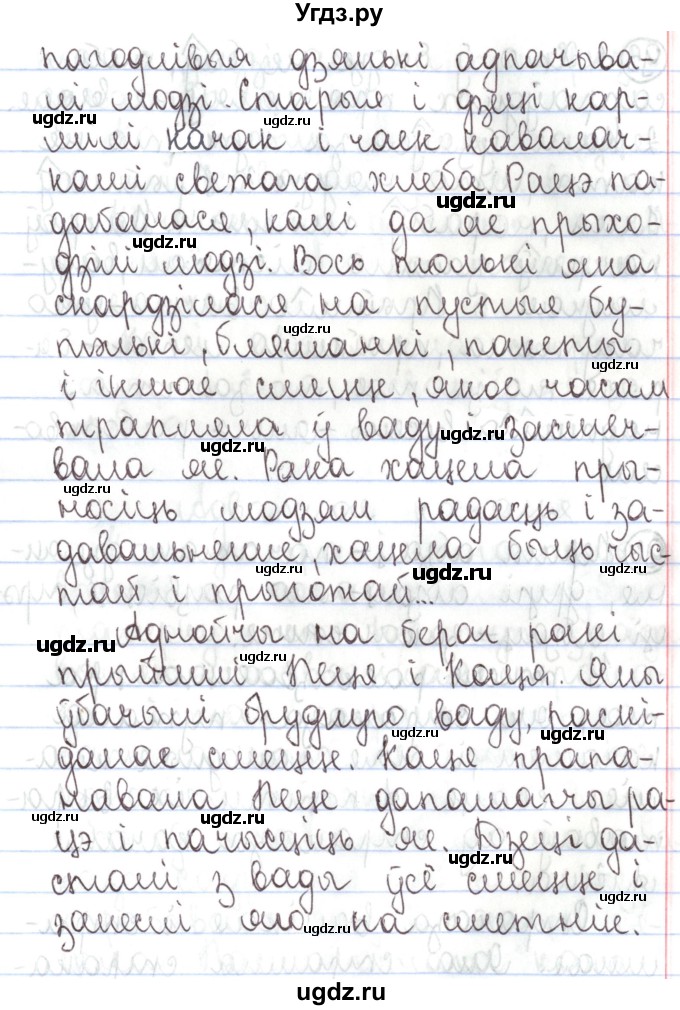 Угдз.ру
пагодлівыя дзянькі адпачыва-
лі людзі. Старыя і дзеці кар-
мілі качак і чаек кавалач-
камі свежага хлеба. Рацэ па-
дабалася, калі да яе прыхо-
дзілі людзі. Вось толькі яна
скардзілася на пустыя бу-
тэлькі, бляшанкі, пакеты
і іншае смецце, якое часам
трапляла ў ваду і засмеч-
вала яе. Рака хацела пры-
носіць людзям радасць і за-
давальненне, хацела быць чыс-
тай і прыгожай...
Аднойчы на бераг ракі
прыйшлі Пеця і Каця. Яны
ўбачылі брудную ваду, раскі-
данае смецце. Каця прапа-
навала Пеце дапамагчы ра-
цэ і пачысціць яе. Дзеці да-
сталі з вады ўсё смецце і
занеслі яго на сметнік.
ugdz.ru